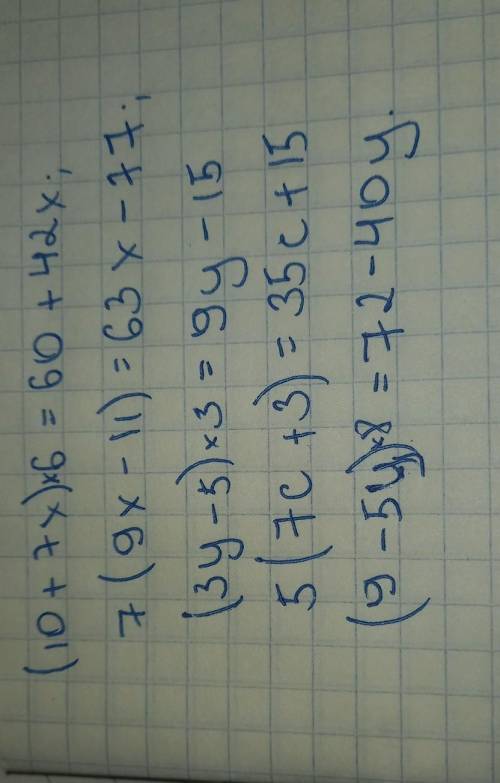 (10 + 7x)×6 = 60 + 42x;
7(9x - 11) = 63x - 77;
(3y - 5)×3 = 9y - 15
5(7c + 3) = 35c + 15
(9 - 5y)×8 = 72 - 40y.